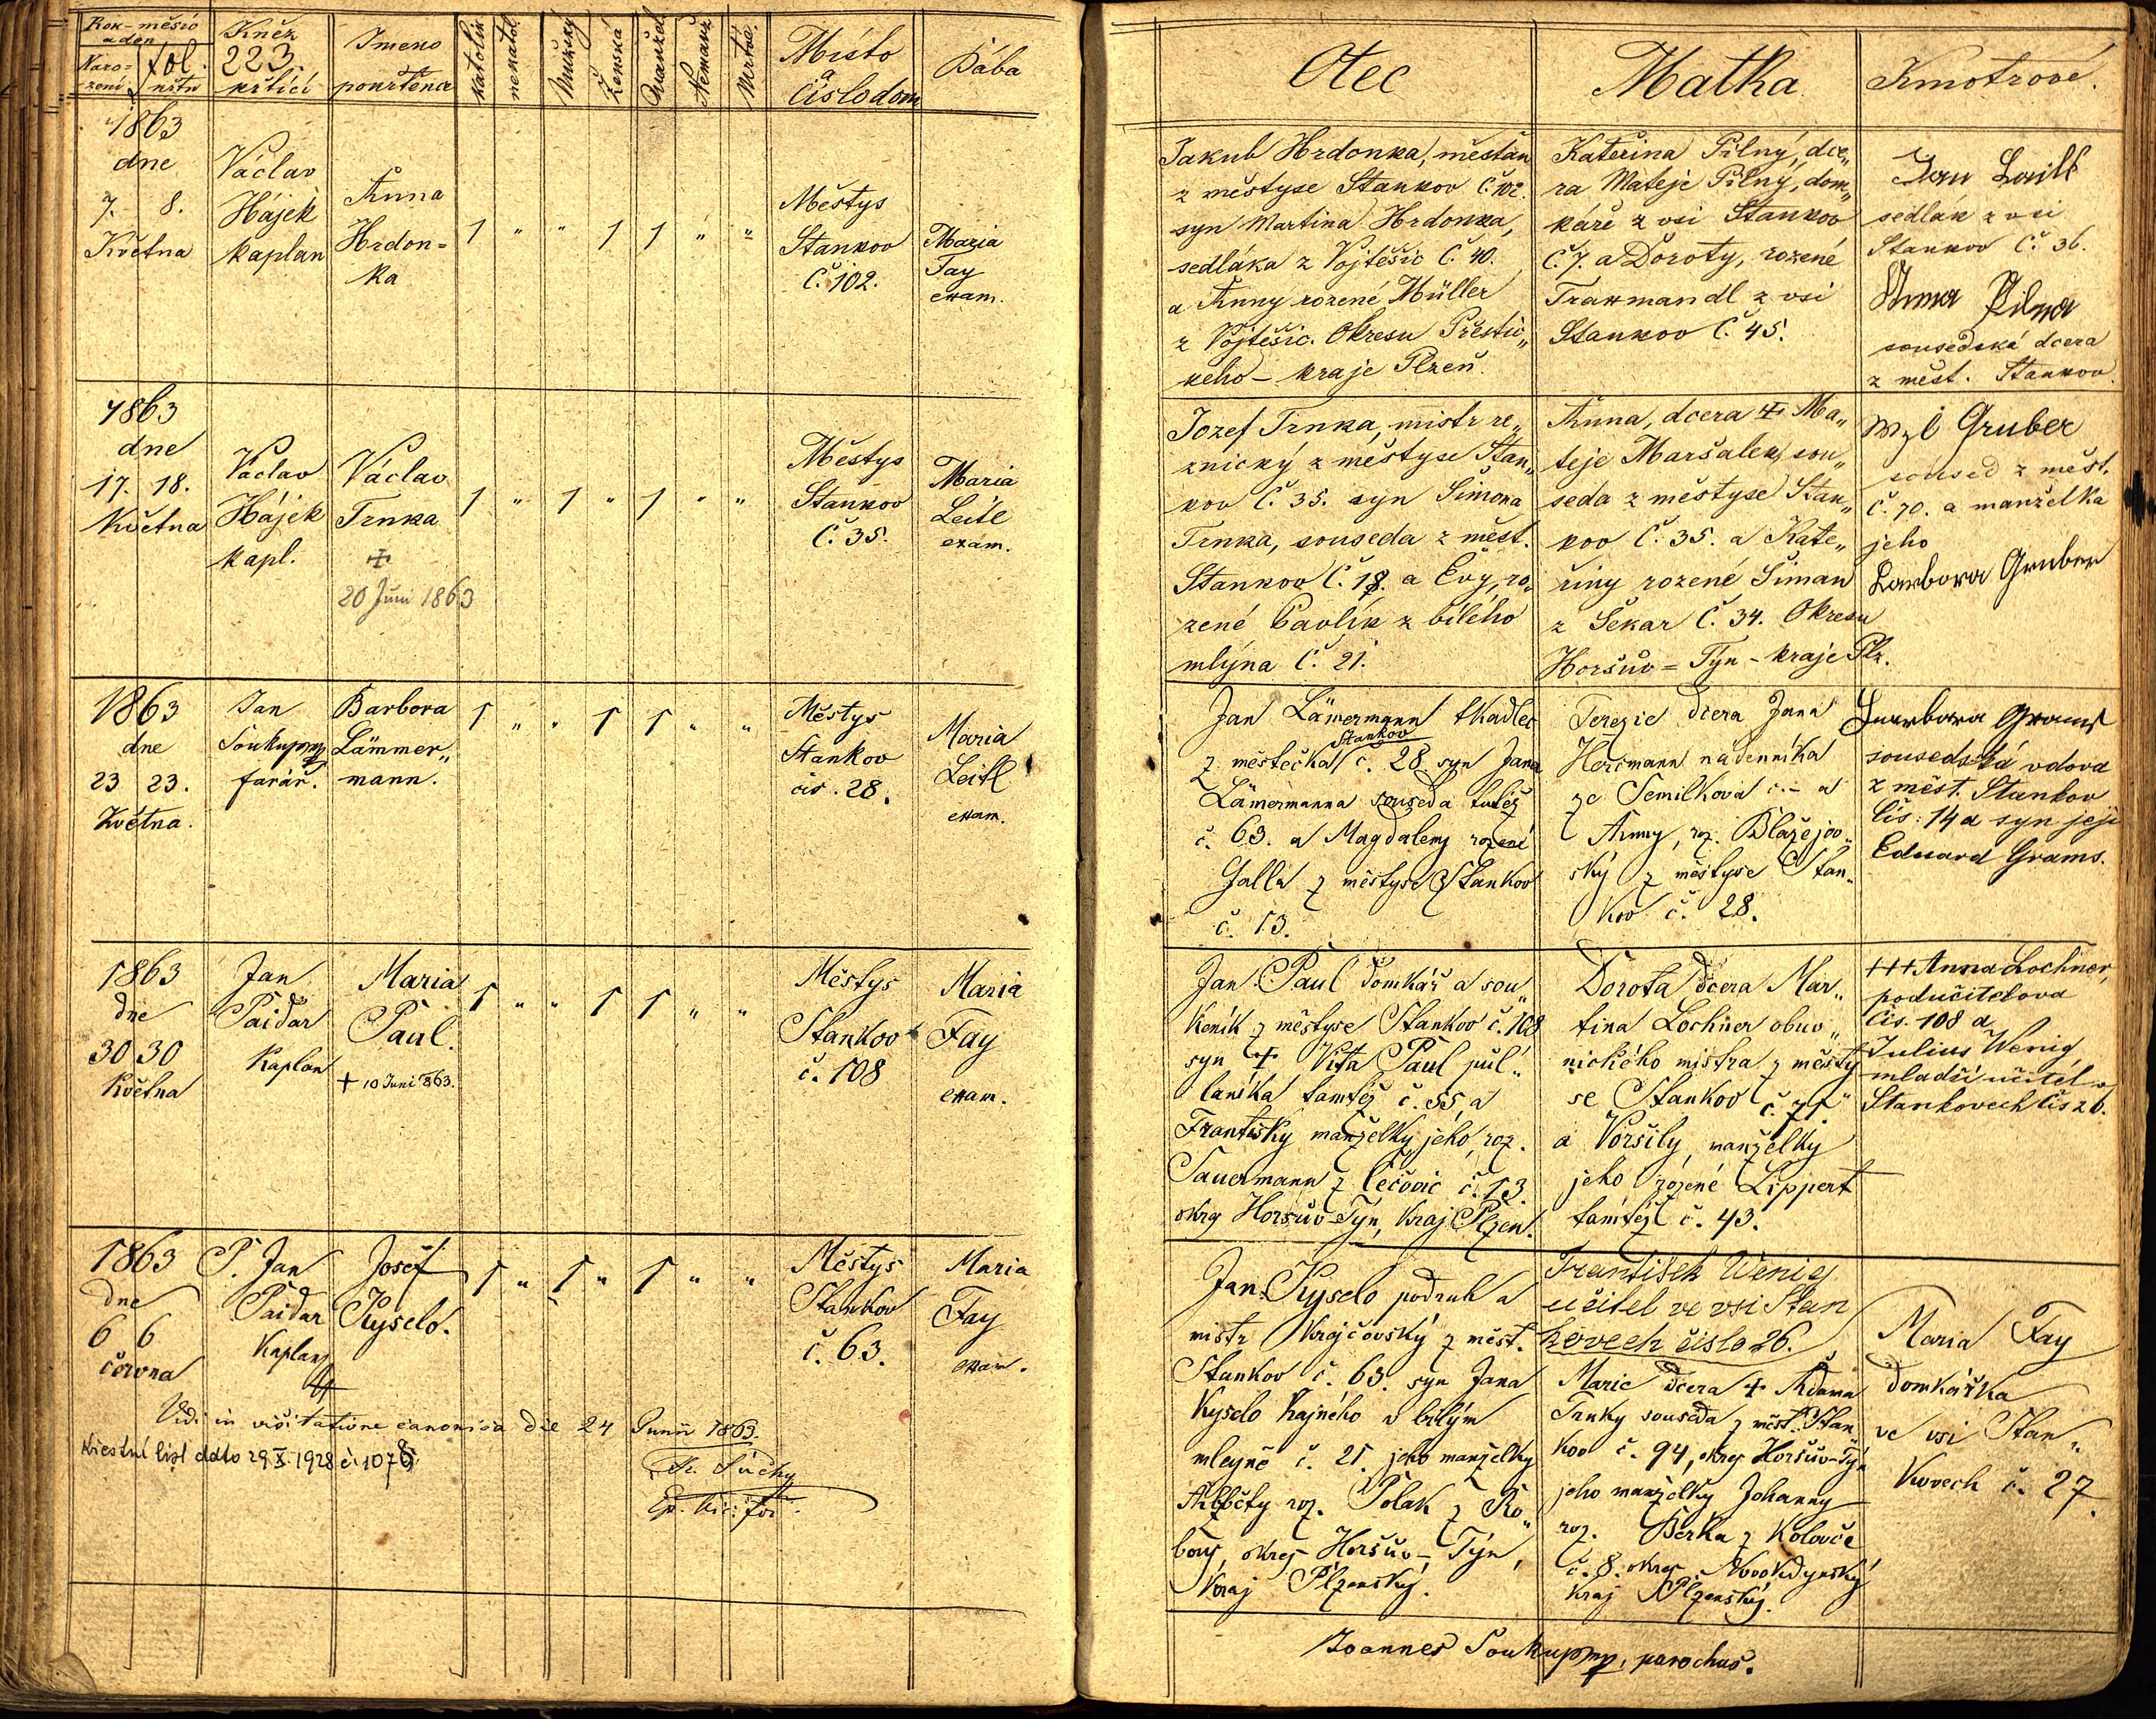 Rok - měsíc
a den
Naro=
zení
křtu
fol.
Kněz
223.
křtící
Jmeno
pokřtěnce
katolík
nekatol.
Mužský
Ženská
Manžel.
Nemanž.
Mrtvé.
Místo
a
číslo dom
Bába
1863
dne
7. 8.
Května
Václav
Hájek
kaplan
Anna
Hrdon=
ka
1 " " 1 1 " "
Městys
Stankov
Č. 102.
Maria
Fay
exam.
1863
dne
17. 18.
Května
Václav
Hájek
kapl.
Václav
Trnka
+
20 Juni 1863
1 " 1 " 1 " "
Městys
Stankov
Č. 35.
Maria
Leitl
exam.
1863
dne
23 23.
Května.
Jan
Soukup
farář.
Barbora
Lämmer„
mann.
1 " " 1 1 " "
Městys
Stankov
čis. 28.
Maria
Leitl
exam.
1863
dne
30 30
Května
Jan
Paidar
Kaplan
Maria
Paul.
+ 10 Juni 863.
1 " " 1 1 " "
Městys
Stankov
č. 108
Maria
Fay
exam.
1863
dne
6 6
června
P. Jan
Paidar
Kaplan
Josef
Kyselo.
1 " 1 " 1 " "
Městys
Stankov
č. 63.
Maria
Fay
exam.
Vidi in visitatione canonica die 24 Junii 1863.
Křestní list ddto 29.X.1928 č. 1078
Otec
Matka
Kmotrové.
Jakub Hrdonka, měštan
z městyse Stankov Č. 102.
syn Martina Hrdonka,
sedláka z Vojtěšic Č. 40.
a Anny rozené Müller
z Vojtěšic. Okresu Přestic„
keho - kraje Plzeň.
Kateřina Pilný, dce„
ra Mateje Pilný, dom„
káře z vsi Stankov
Č. 7. a Doroty, rozené
Traxmandl z vsi
Stankov Č. 45.
Jan Laitl
sedlák z vsi
Stankov Č. 36.
Anna Pilna
sousedská dcera
z měst. Stankov.
Jozef Trnka, mistr re„
znický z městyse Stan„
kov Č. 35. syn Šimona
Trnka, souseda z měst.
Stankov Č. 18. a Evy, ro„
zené Pavlík z bílého
mlýna Č. 21.
Anna, dcera + Ma„
teje Maršalek, sou„
seda z městyse Stan„
kov Č. 35. a Kate„
řiny rozené Šiman
z Sekar Č. 34. Okresu
Horšuv = Týn - kraje Plz.
Wzl Gruber
soused z měst.
Č. 70. a manželka
jeho
Barbora Gruber
Jan Lämermann tkadlec
Stankov
z městečka č. 28 syn Jana
Lämermanna souseda tutéž
č. 63. a Magdaleny rozené
Galla z městyse Stankov
č. 13.
Terezie dcera Jana
Hercmann nádenníka
ze Semilkova č. - a
Anny, roz. Blažejov„
ský z městyse Stan„
kov č. 28.
Barbara Grams
sousedská vdova
z měst. Stankov
čis: 14 a syn její
Eduard Grams.
Jan Paul domkář a sou„
keník z městyse Stankov č. 108
syn + Vita Paul půl„
laníka tamtéž č. 55, a
Františky manželky jeho, roz.
Sauermann z Čečovic č. 13.
okrg Horšuv-Týn, kraj Plzen.
Dorota dcera Mar„
tina Lochner obuv„
nického mistra z městy
se Stankov č. 71
a Voršily, manželky
jeho rozené Lippert
tamtéž č. 43.
+++ Anna Lochner,
podučitelova
čis. 108 a
Julius Wenig,
mladší učitel v
Stankovech čis 26.
Jan Kyselo podruh a
mistr krajčovský z měst.
Stankov č. 63. syn Jana
Kyselo krajného v bílým
mlejně č. 21. jeho manželky
Alžběty roz. Polak z Ro„
bov, okres Horšuv-Týn,
kraj Plzenský.
František Wenig
učitel ve vsi Stan
kovech číslo 26.
Marie dcera + Adama
Trnky souseda z měst. Stan„
kov č. 94, okres Horšuv-Týn
jeho manželky Johanny
roz. Berka z Koloveče
č. 8. okres Novokdynský
kraj Plzenský.
Maria Fay
domkářka
ve vsi Stan„
kovech č. 27.
Joannes Soukup, parochus.